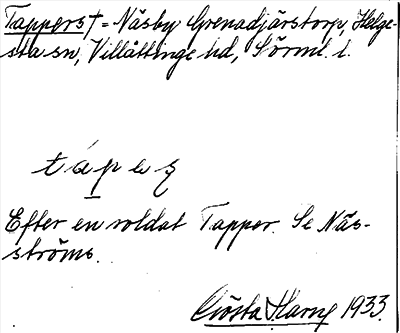 Tappers † = Näsby Grenadjärstorp, Helge-
sta sn, Villåttinge hd, Sörml. l.
Efter en soldat Tapper. Se Näs-
ströms.
Gösta Harny 1933.